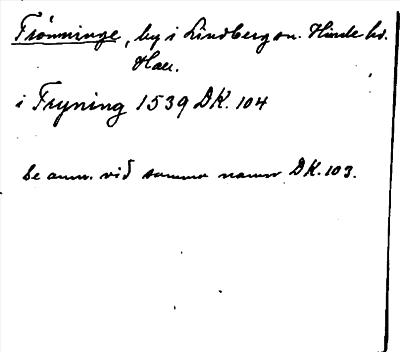 Frömninge, by i Lindberg sn. Himle hd.
Hall.
i Fryning 1539 DK. 104
se anm. vid samma namn DK. 103.